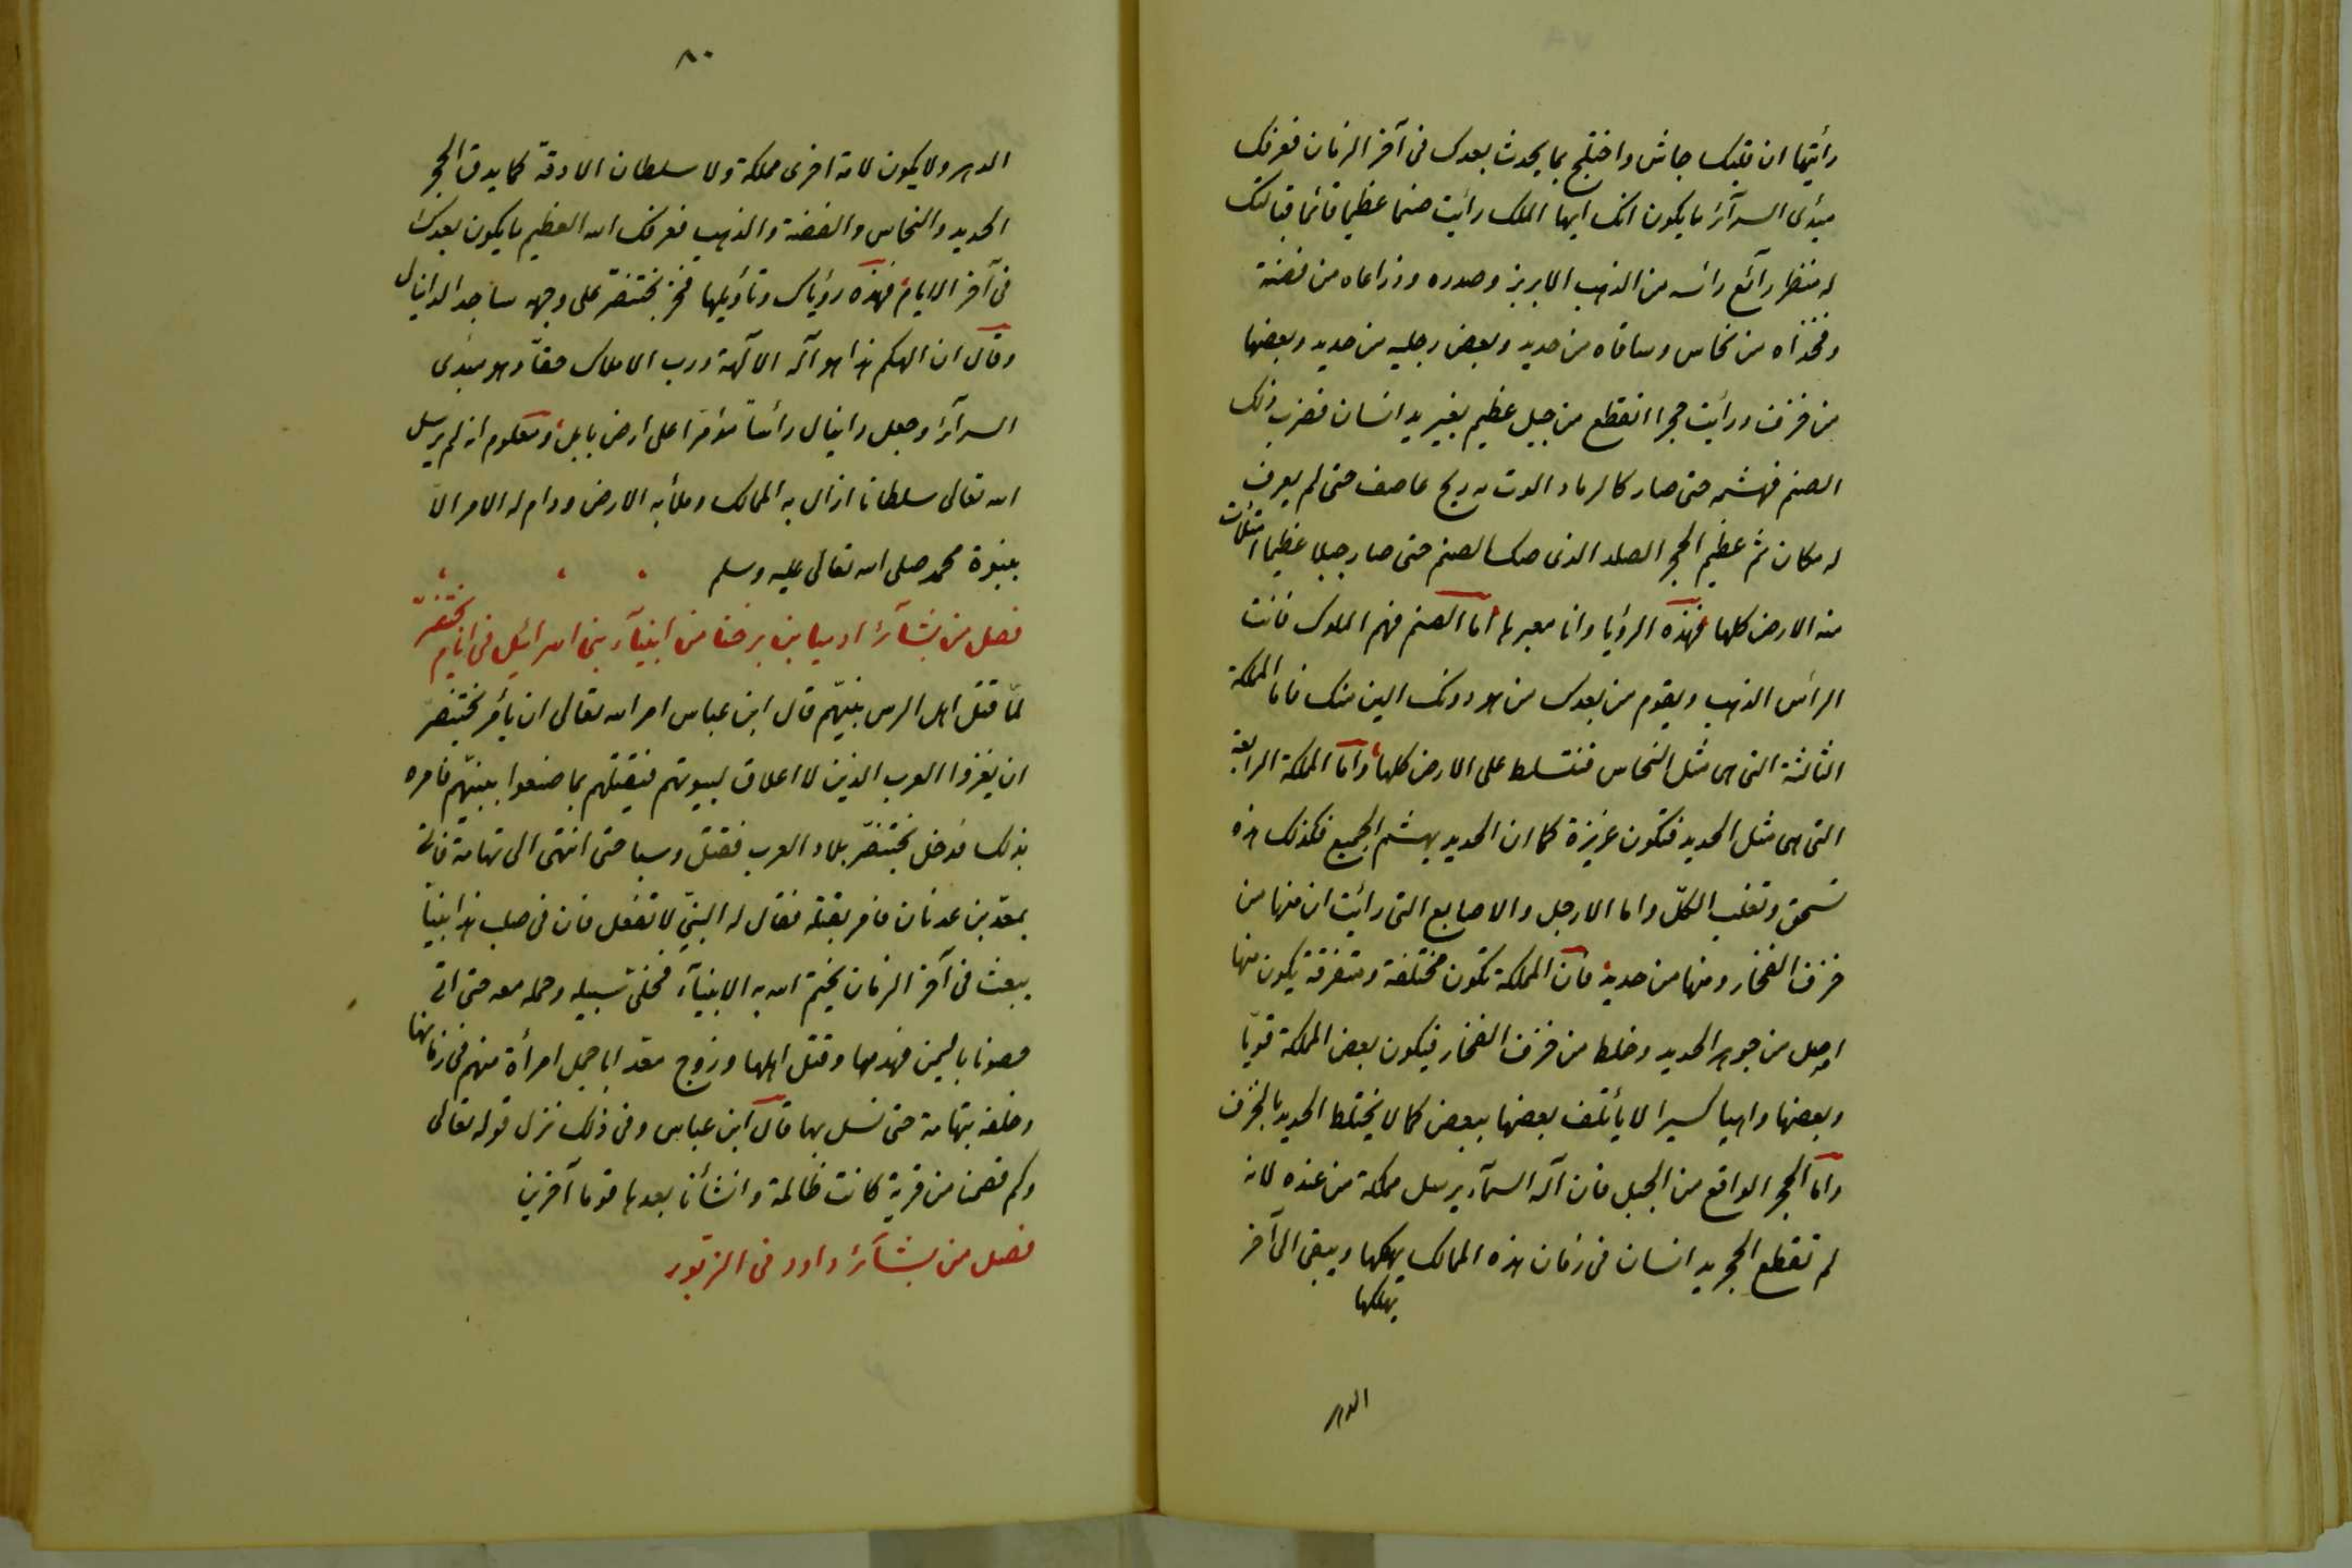 رأيتها ان قلبك جاش واختلج بما يحدث بعدك فى آخر الزمان فعرفك
مبدئ السرآئر ما يكون انك ايها الملك رائيت صنما عظيما قائما قبالتك
له منظر رآئع رائسه من الذهب الابريز وصدره وذراعاه من فضة
وفخذاه من نحاس وساقاه من حديد وبعض رجليه من حديد وبعضها
من خزف ورائيت حجرا انقطع من جبل عظيم بغير يد انسان فضرب ذلك
الصنم فهشمه حتى صار كالرماد الوت به ريح عاصف حتى لم يعرف
له مكان ثم عظيم الحجر الصلد الذى صك الصنم حتى صار جبلا عظيما امتلأت
منه الارض كلها فهذه الرؤيا وانا معبرها اما الصنم فهم الملوك فانت
الرائس الذهب ويقوم من بعدك من هو دونك الين منك فاما المملكة
الثالثة التى هى مثل النحاس فتتسلط على الارض كلها واما المملكة الرابعة
التى هى مثل الحديد فتكون عزيزة كما ان الحديد يهشم الجميع فكذلك هذه
تسحق وتغلب الكلّ واما الارجل والاصابع التى رائيت ان منها من
خزف الفخار ومنها من حديد فان المملكة تكون مختلفة ومتفرقة يكون منها
اصل من جوهر الحديد وخلط من خزف الفخار فيكون بعض المملكة قويّا
وبعضها واهيا كسيرا لا يأتلف بعضها ببعض كما لا يختلط الحديد بالخزف
واما الحجر الواقع من الجبل فان آله السمآء يرسل مملكة من عنده لانه
لم تقطع الحجر يد انسان فى زمان هذه الممالك يهلكها ويبقى الى آخر
يهلكها
الدهر
٨٠
الدهر ولا يكون لامة اخرى مملكة ولا سلطان الا دقّه كما يدق الحجر
الحديد والنحاس والفضة والذهب فعرفك الله العظيم ما يكون بعدك
فى آخر الايام فهذه رؤياك وتأويلها فخر بختنصّر على وجهه ساجدا لدانيال
وقال ان الهكم هذا هو آله الآلهة ورب الاملاك حقاّ وهو مبدى
السرآئر وجعل دانيال رائسا مؤمرا على ارض بابل ومعلوم انه لم يرسل
الله تعالى سلطانا ازال به الممالك وملأ به الارض ودام له الامر الاّ
بنبوة محمد صلى الله تعالى عليه وسلم
فصل من بشآئر ارميا بن برخنا من انبيآء بنى اسرائيل فى ايام بختنصّر
لمّا قتل اهل الرس نبيّهم قال ابن عباس امر الله تعالى ان يأمر بختنصر
ان يغزوا العرب الذين لا اغلاق لبيوتهم فيقتلهم بما صنعوا بنبيّهم فامره
بذلك فدخل بختنصّر بلاد العرب فقتل وسبا حتى انتهى الى تهامة فاتى
بمعدّ بن عدنان فامر بقتله فقال له النبىّ لا تفعل فان فى صلب هذا نبيّا
يبعث فى آخر الزمان يختم الله به الانبيآء فخلىّ سبيله وحمله معه حتى اتى
حصونا باليمن فهدمها وقتل اهلها وزوج معد اباجمل امرأة منهم فى زمانها
وخلفه بتهامة حتى نسل بها قال ابن عباس وفى ذلك نزل قوله تعالى
وكم قصمنا من قرية كانت ظالمة وانشأنا بعدها قوما آخرين
فصل من بشآئر داود فى الزبور